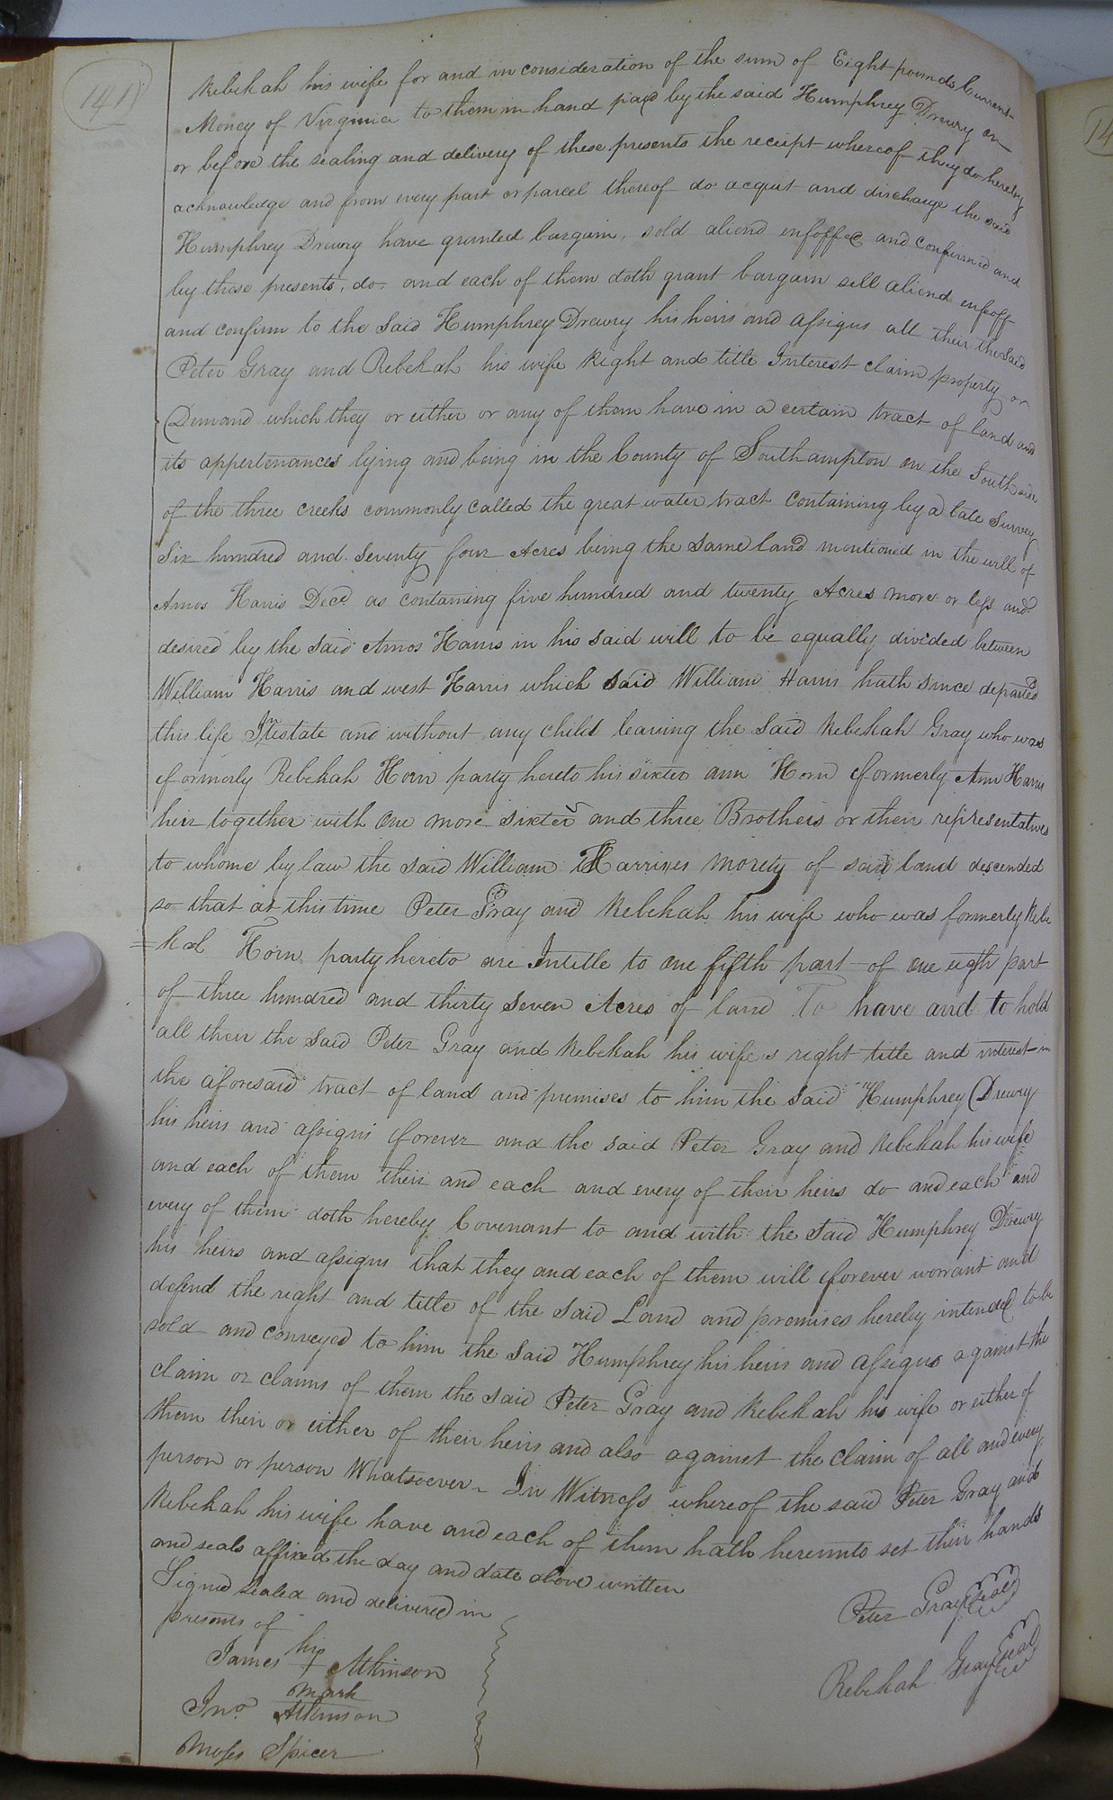 141
Rebekah his wife for and in consideration of the sum of Eight pounds Current
Money of Virginia to them in hand paid by the said Humphrey Drewry on
or before the sealing and delivery of these presents the receipt whereof they do hereby
acknowledge and from every part or parcel thereof do acquit and discharge the said
Humphrey Drewry have granted bargain, sold aliend enfoffed and confirmed and
by these presents, do, and each of them doth grant bargain sell aliend enfeoff
and confirm to the said Humphrey Drewry his heirs and assigns all their the said
Peter Gray and Rebekah his wife Right and title Interest claim property or
Demand which they or either or any of them have in a certain tract of land and
its appertenances lying and being in the County of Southampton on the South side
of the three creeks commonly called the great water tract Containing by a late Survey
Six hundred and Seventy four Acres being the same land mentioned in the will of
Amos Harris Decd as containing five hundred and twenty Acres more or less and
desired by the said Amos Harris in his said will to be equally divided between
William Harris and west Harris which said William Harris hath since departed
this life Intestate and without any child leaving the said Rebekah Gray who was
formerly Rebekah Horn party hereto his sister ann Horn formerly Ann Harris
heir together with One more sister and three Brothers or their representatives
to whome by law the said William Harrises morety of said land descended
so that at this time Peter Gray and Rebekah his wife who was formerly Rebe
=kah Horn party hereto are Intitle to one fifth part of one eigth part
of three hundred and thirty seven Acres of land To have and to hold
all their the said Peter Gray and Rebekah his wife's right title and interest in
the aforesaid tract of land and premises to him the said Humphrey Drewry
his heirs and assigns forever and the said Peter Gray and Rebekah his wife
and each of them their and each and every of their heirs do and each and
every of them doth hereby Covenant to and with the said Humphrey Drewry
his heirs and assigns that they and each of them will forever warrant and
defend the right and title of the said Land and promises hereby intended to be
sold and conveyed to him the said Humphrey his heirs and assigns against the
claim or claims of them the said Peter Gray and Rebekah his wife or either of
them their or either of their heirs and also against the claim of all and every
person or person Whatsoever - In Witness whereof the said Peter Gray and
Rebekah his wife have and each of them hath hereunto set their hands
and seals affixed the day and date above written
Signed sealed and delivered in
presents of
Peter Gray Seal
James his + mark Atkinson
Rebekah Gray Seal
Jno. Atkinson
Moses Spicer